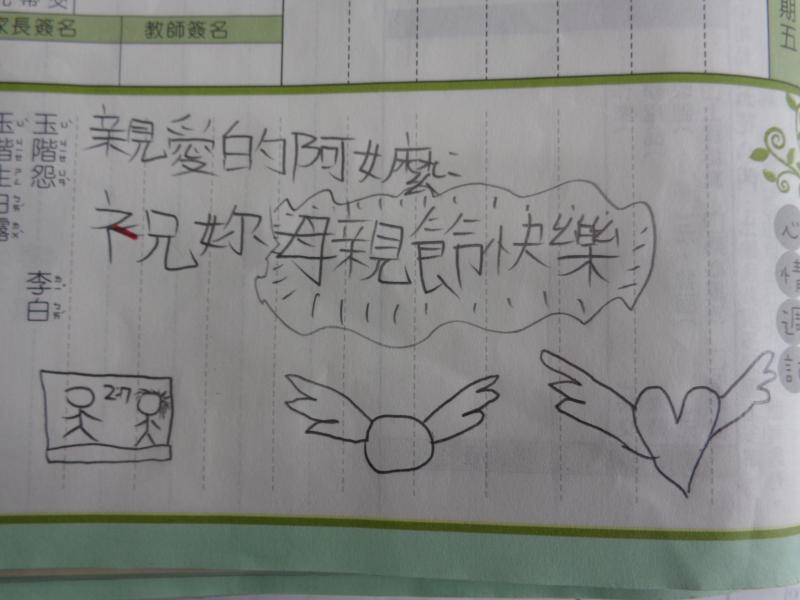 家長簽名 教師簽名
期五
親愛的阿嬤:
祝妳、母親節快樂
玉階怨
李白
玉階生白露
心情週記
27